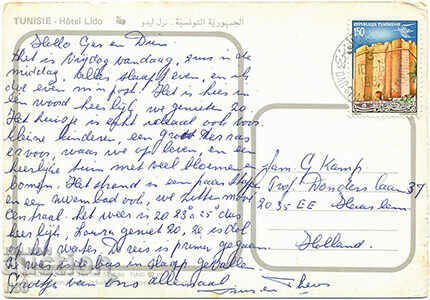 TUNISIE - Hôtel Lido
الجمهورية التونسية - نزل ليدو
REPUBLIQUE TUNISIENNE
150
Hello Ger en Dien.
Het is vrijdag vandaag, 2 uur is de
middag, alles slaapt even, en ik
doe even mijn post. Het is hier in
een woord heerlijk, we genieten zo.
Het huisje is echt ideaal ook voor
kleine kinderen, een groot terras
ervoor, waar we op leven, en een
heerlijke tuin met veel bloemen en
bomen. Het strand is een paar stapjes
en zwembad ook, we zitten mooi
centraal. Het weer is 20 23 a 25 dus
heerlijk, Laura geniet zo, ze is dol
op het water. De reis is prima gegaan
ze was in de bus in slaap gevallen
Groetjes van ons allemaal
Fam. G Kamp
Prof. Donderslaan 37
2035 EE Haarlem
Holland.